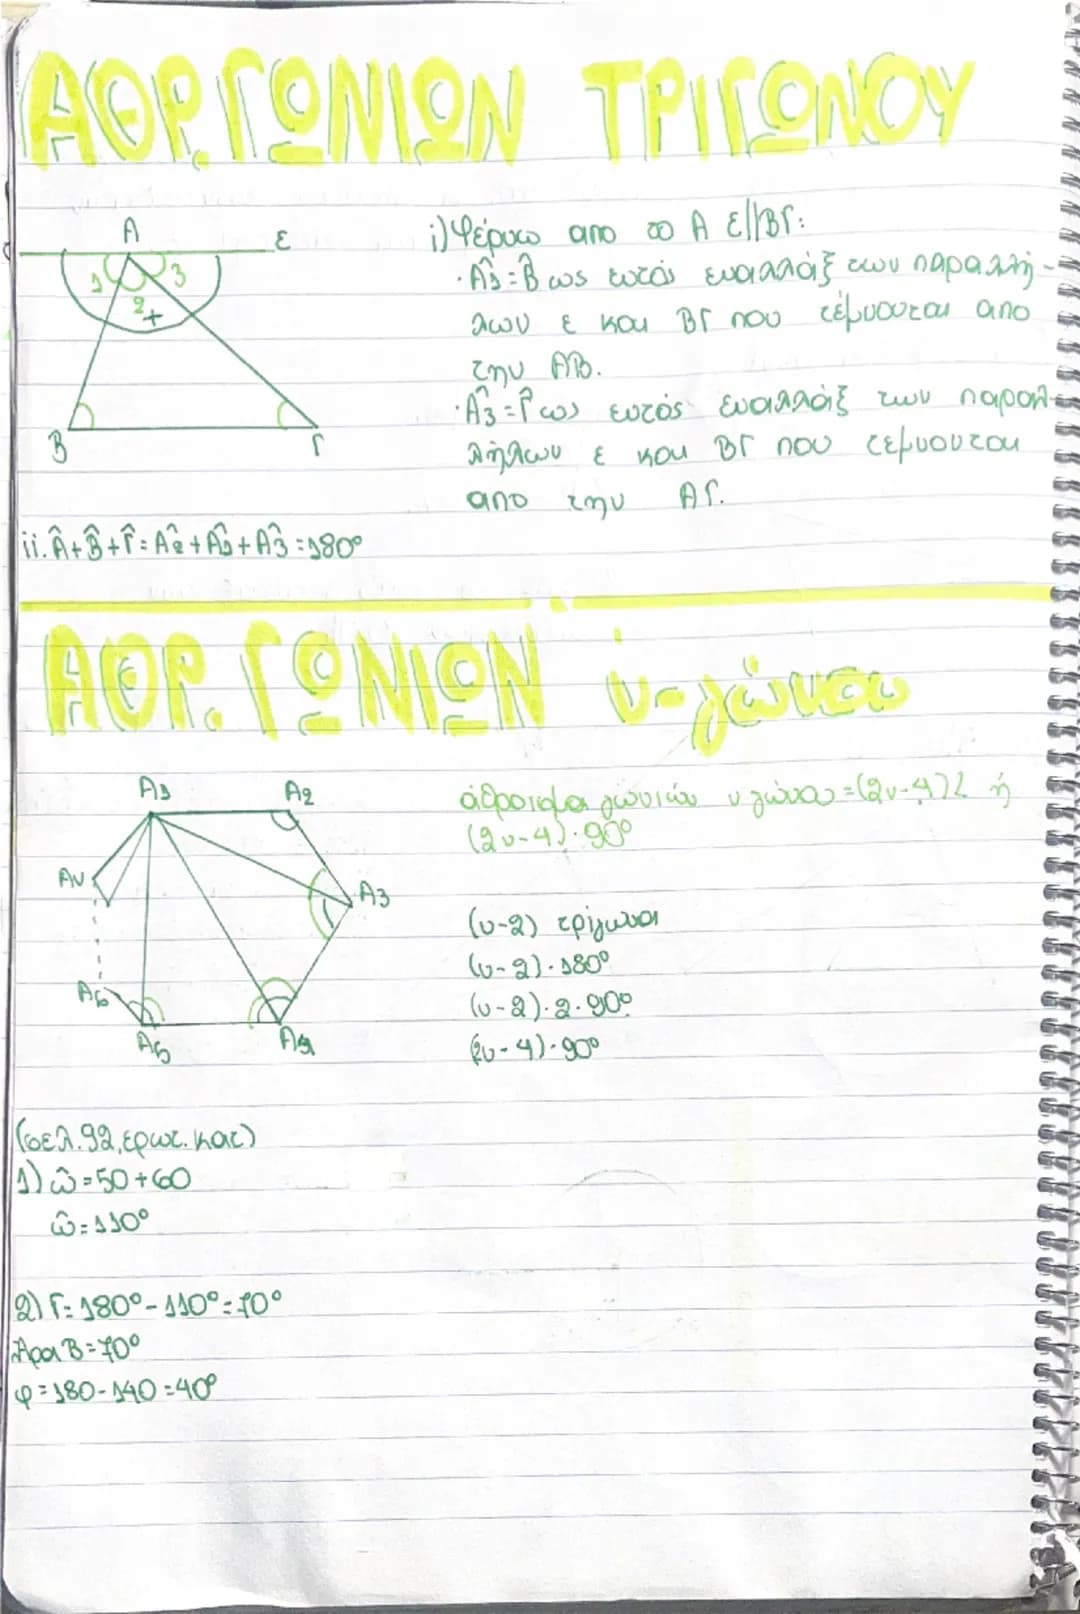 ΑΘΡ. ΓΩΝΙΩΝ ΤΡΙΓΩΝΟΥ
Α
ε
1
3
2
+
Β
Γ
i) Φέρνω απο το Α ε//ΒΓ:
· Â1 = B̂ ως εντός εναλλάξ των παραλλή-
λων ε και ΒΓ που τέμνονται απο
την ΑΒ.
· Â3 = Γ̂ ως εντός εναλλάξ των παραλ-
λήλων ε και ΒΓ που τεμνονται
απο την ΑΓ.
ii. Â + B̂ + Γ̂ = Â2 + Â1 + Â3 = 180°
ΑΘΡ. ΓΩΝΙΩΝ ν-γώνου
Α1
Α2
Αν
Α3
Α6
Α5
Α4
άθροισμα γωνιών ν γώνου = (2ν-4)L ή
(2ν-4)·90°
(ν-2) τρίγωνα
(ν-2)·180°
(ν-2)·2·90°
(2ν-4)·90°
(σελ.92, ερωτ. κατ)
1) ω̂ = 50 + 60
ω̂ = 110°
2) Γ = 180° - 110° = 70°
Άρα Β = 70°
φ = 180 - 140 = 40°